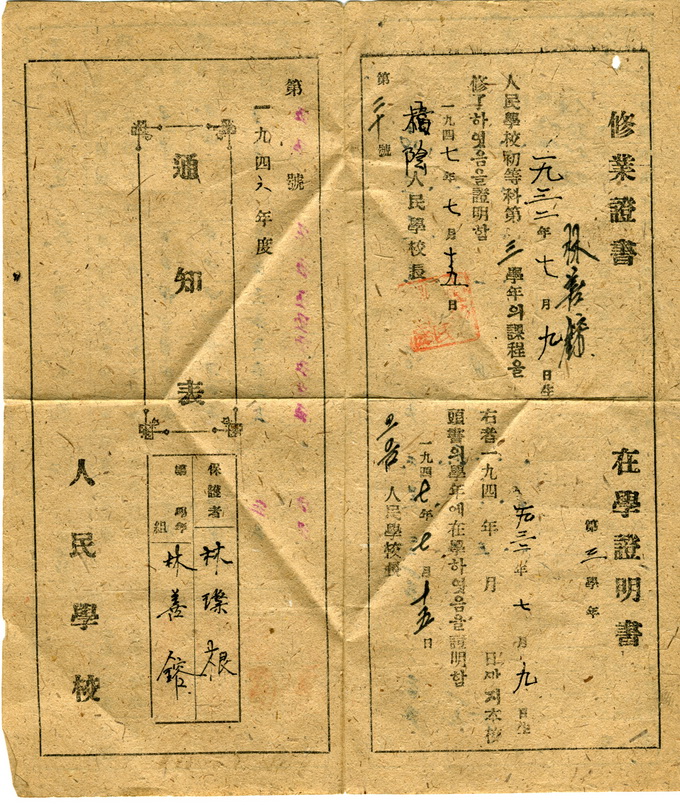 修業證書
林善鎔
一九三二年七月九日生
人民學校初等科第三學年의課程을
修了하엿음을證明함
一九四七年七月十五日
橋陰人民學校長
第二十號
在學證明書
第三學年
一九三二年七月九日生
右者一九四 年 月 日마지本校
頭書의學年에在學하엿음을證明함
一九四七年七月十五日
人民學校長
第 號
一九四六年度
通知表
人民學校
保護者 林璨根
第 學年 組 林善鎔